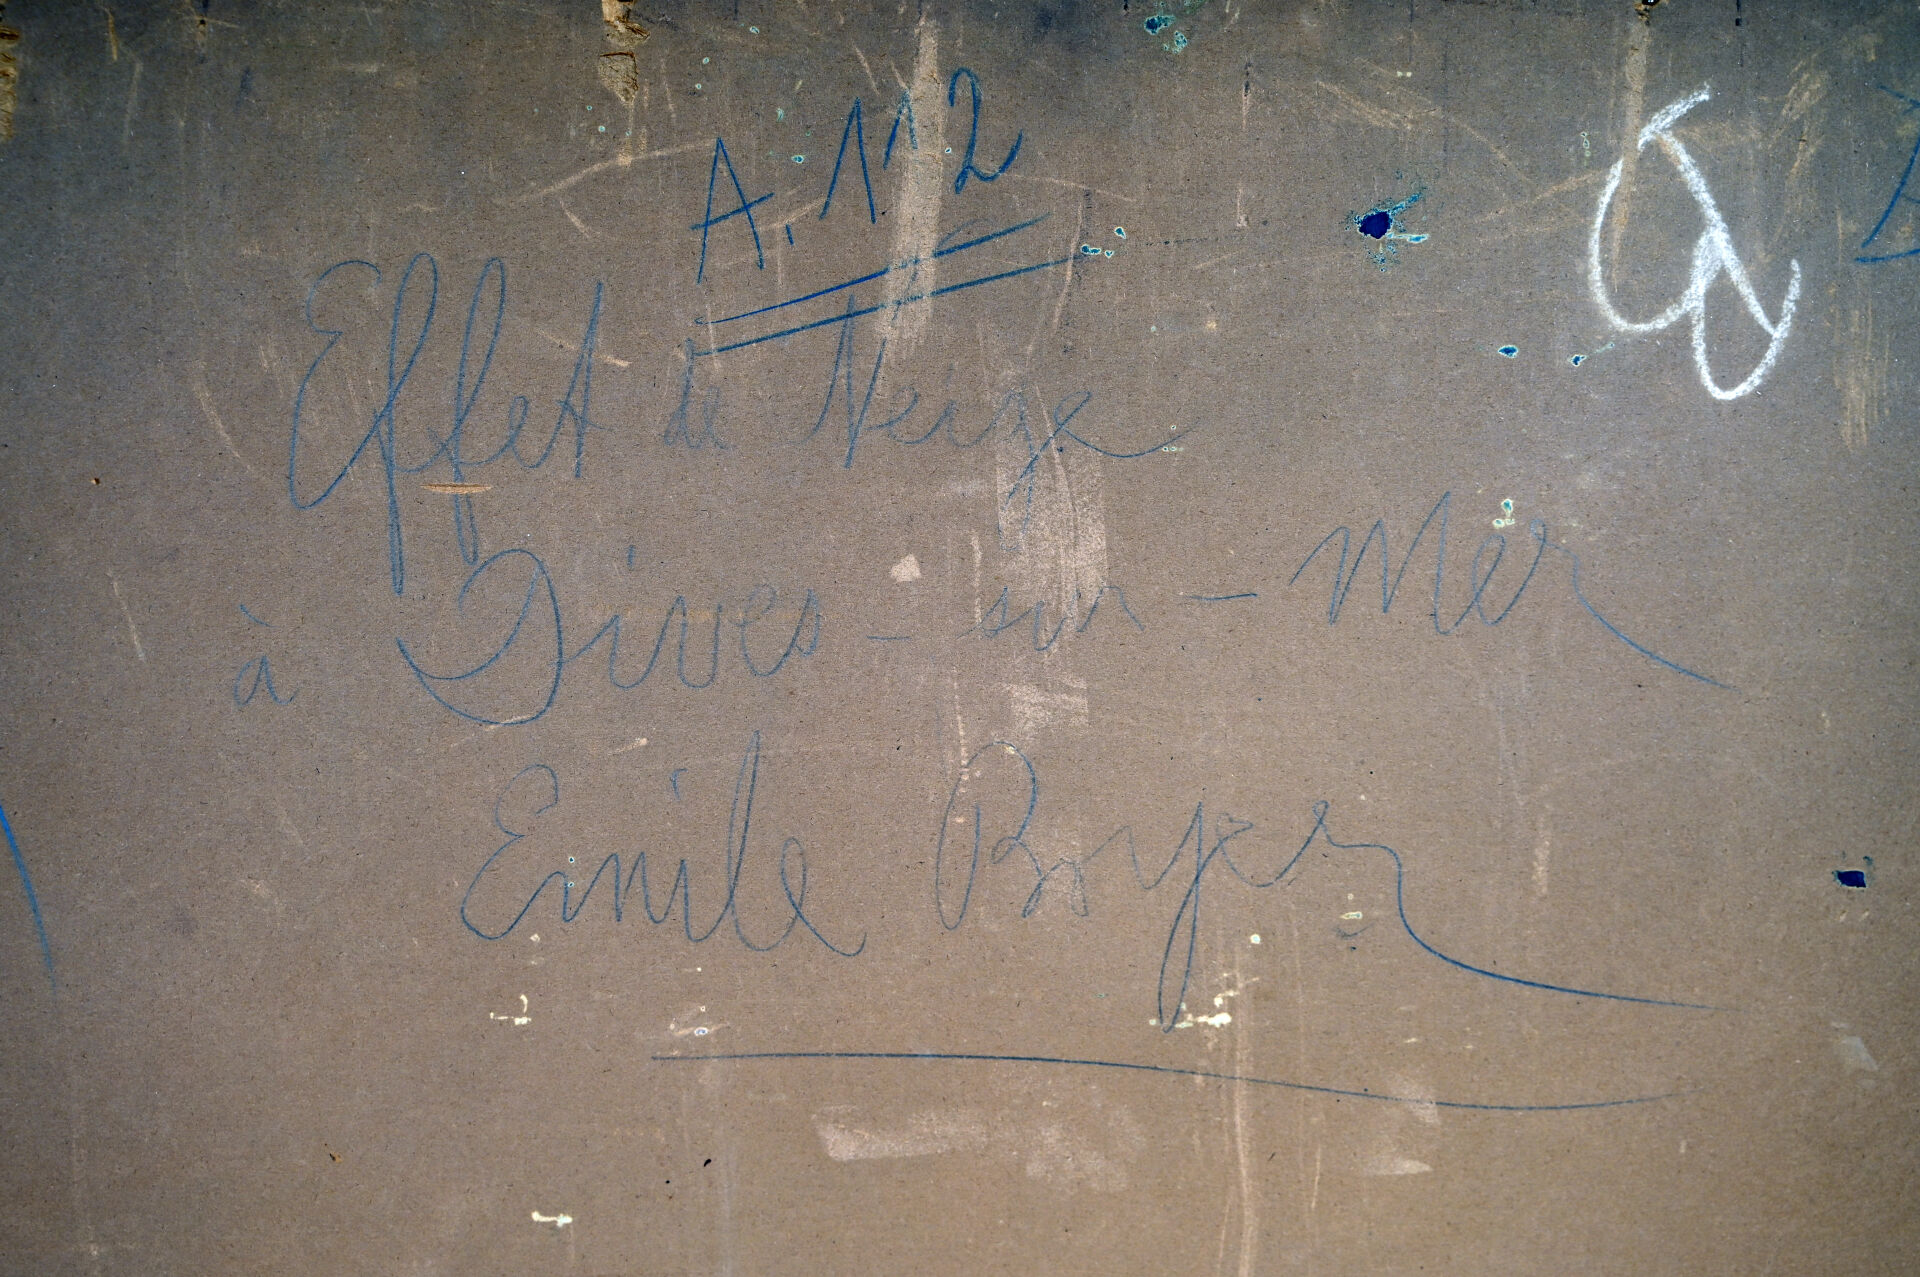 A.112
Effet de Neige
à Dives-sur-Mer
Emile Boyer